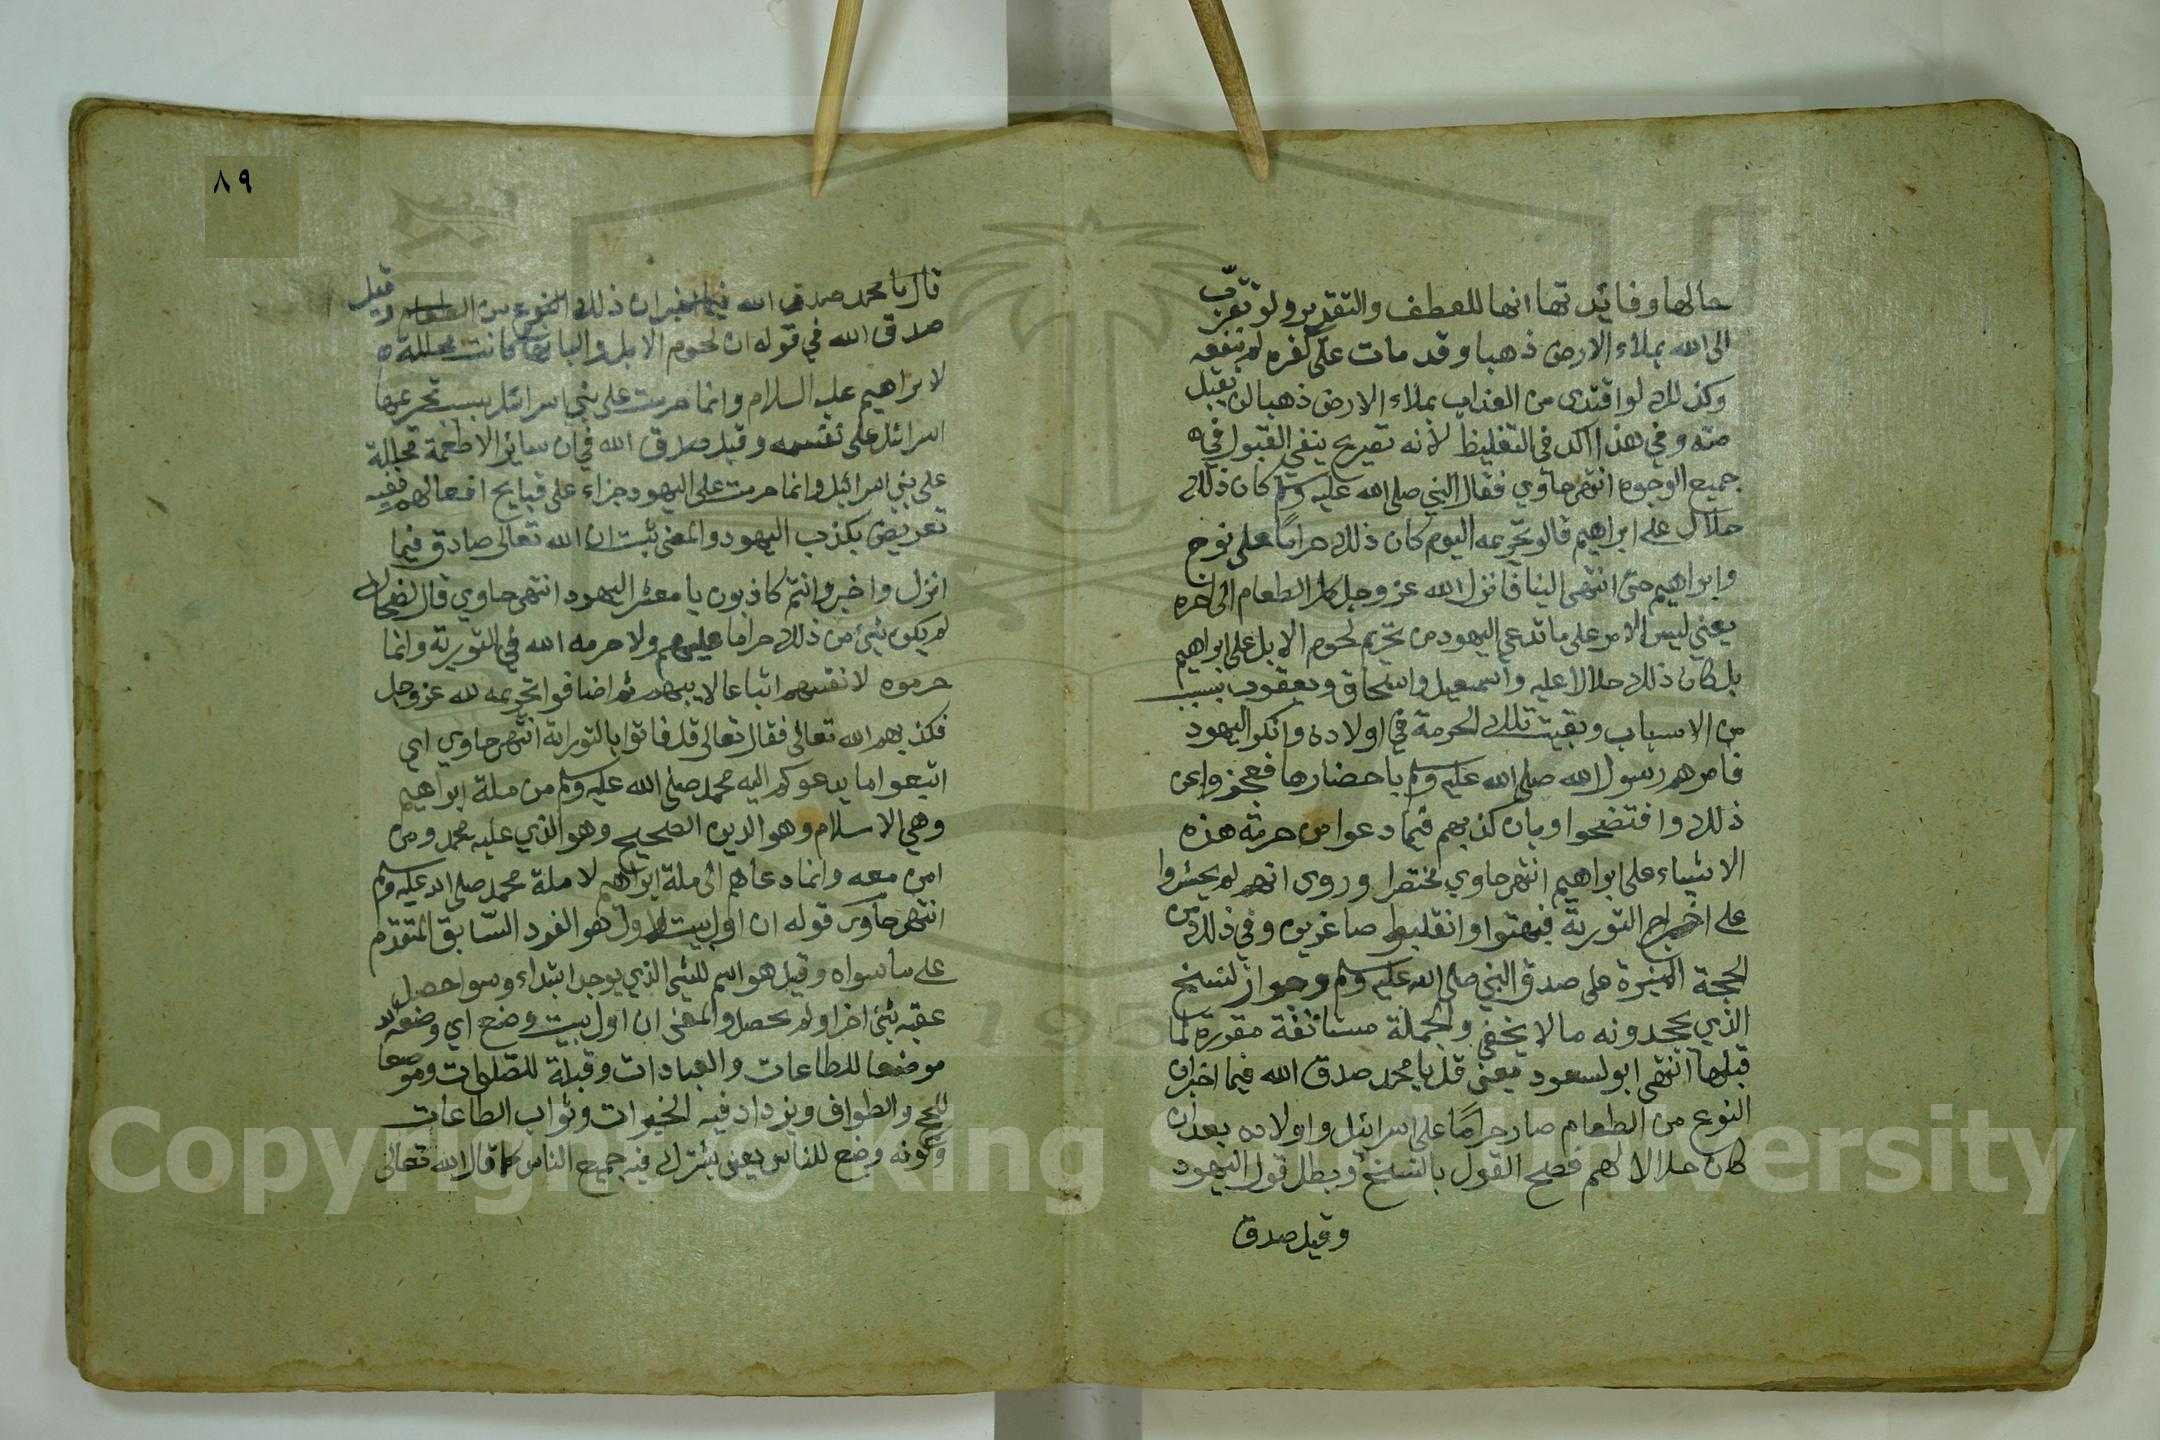 حالها وفائدتها انها للعطف والتقدير ولو تقرب
الى الله بملاء الارض ذهبا وقد مات على كفره لم ينفعه
وكذلك لو افتدى من العذاب بملاء الارض ذهبا لن يقبل
منه وفي هذا اكد في التغليظ لانه تصريح بنفي القبول في
جميع الوجوه انتهى حاوي فقال النبي صلى الله عليه وسلم كان ذلك
حلال على ابراهيم قالو تحريمه اليوم كان ذلك حراما على نوح
وابراهيم حتى انتهى الينا فانزل الله عز وجل كل الطعام الى اخره
يعني ليس الامر على ما تدعي اليهود من تحريم لحوم الابل على ابراهيم
بل كان ذلك حلالا عليه واسمعيل واسحاق ويعقوب بسبب
من الاسباب وبقيت تلك الحرمة في اولاده وانكر اليهود
فامرهم رسول الله صلى الله عليه وسلم باحضارها فعجزوا عن
ذلك وافتضحوا وبان كذبهم فيما دعوا من حرمة هذه
الاشياء على ابراهيم انتهى حاوي مختصرا وروى انهم لم يجسروا
على اخراج التورية فبهتوا وانقلبوا صاغرين وفي ذلك من
الحجة النيرة على صدق النبي صلى الله عليه وسلم وجواز لنسخ
الذي يجحدونه ما لا يخفى والجملة مستانفة مقررة لما
قبلها انتهى ابو لسعود يعنى قل يا محمد صدق الله فيما اخبر ان
النوع من الطعام صار حراما على اسرائيل واولاده بعد ان
كان حلالا لهم فصح القول بالنسخ وبطل قول اليهود
وقيل صدق
٨٩
قال يا محمد صدق الله فيما اخبر ان ذلك النوع من الطعام وقيل
صدق الله في قوله ان لحوم الابل والبانها كانت محللة
لابراهيم عليه السلام وانما حرمت على بني اسرائيل بسبب تحريمها
اسرائيل على نفسه وقيل صدق الله في ان سائر الاطعمة محللة
على بني اسرائيل وانما حرمت على اليهود جزاء على قبايح افعالهم ففيه
تعريض بكذب اليهود والمعنى ثبت ان الله تعالى صادق فيما
انزل واخبر وانتم كاذبون يا معشر اليهود انتهى حاوي قال الضحاك
لم يكن شئ من ذلك حراما عليهم ولا حرمه الله في التورية وانما
حرموه لانفسهم اتباعا لابيهم ثم اضافوا تحريمه لله عز وجل
فكذبهم الله تعالى فقال تعالى قل فاتوا بالتوراة انتهى حاوي اي
اتبعوا ما يدعوكم اليه محمد صلى الله عليه وسلم من ملة ابراهيم
وهي الاسلام وهو الدين الصحيح وهو الذي عليه محمد ومن
امن معه وانما دعاهم الى ملة ابراهيم لا ملة محمد صلى الله عليه وسلم
انتهى حاوى قوله ان اول بيت الاول هو الفرد السابق المتقدم
على ما سواه وقيل هو اسم للشئ الذي يوجد ابتداء وسوا حصل
عقبه شئ اخر او لم يحصل والمعنى ان اول بيت وضع اي وضعه الله
موضعا للطاعات والعبادات وقبلة للصلوات وموضعا
للحج والطواف ويزداد فيه الخيرات وثواب الطاعات
وكونه وضع للناس يعنى يشترك فيه جميع الناس كما قال الله تعالى